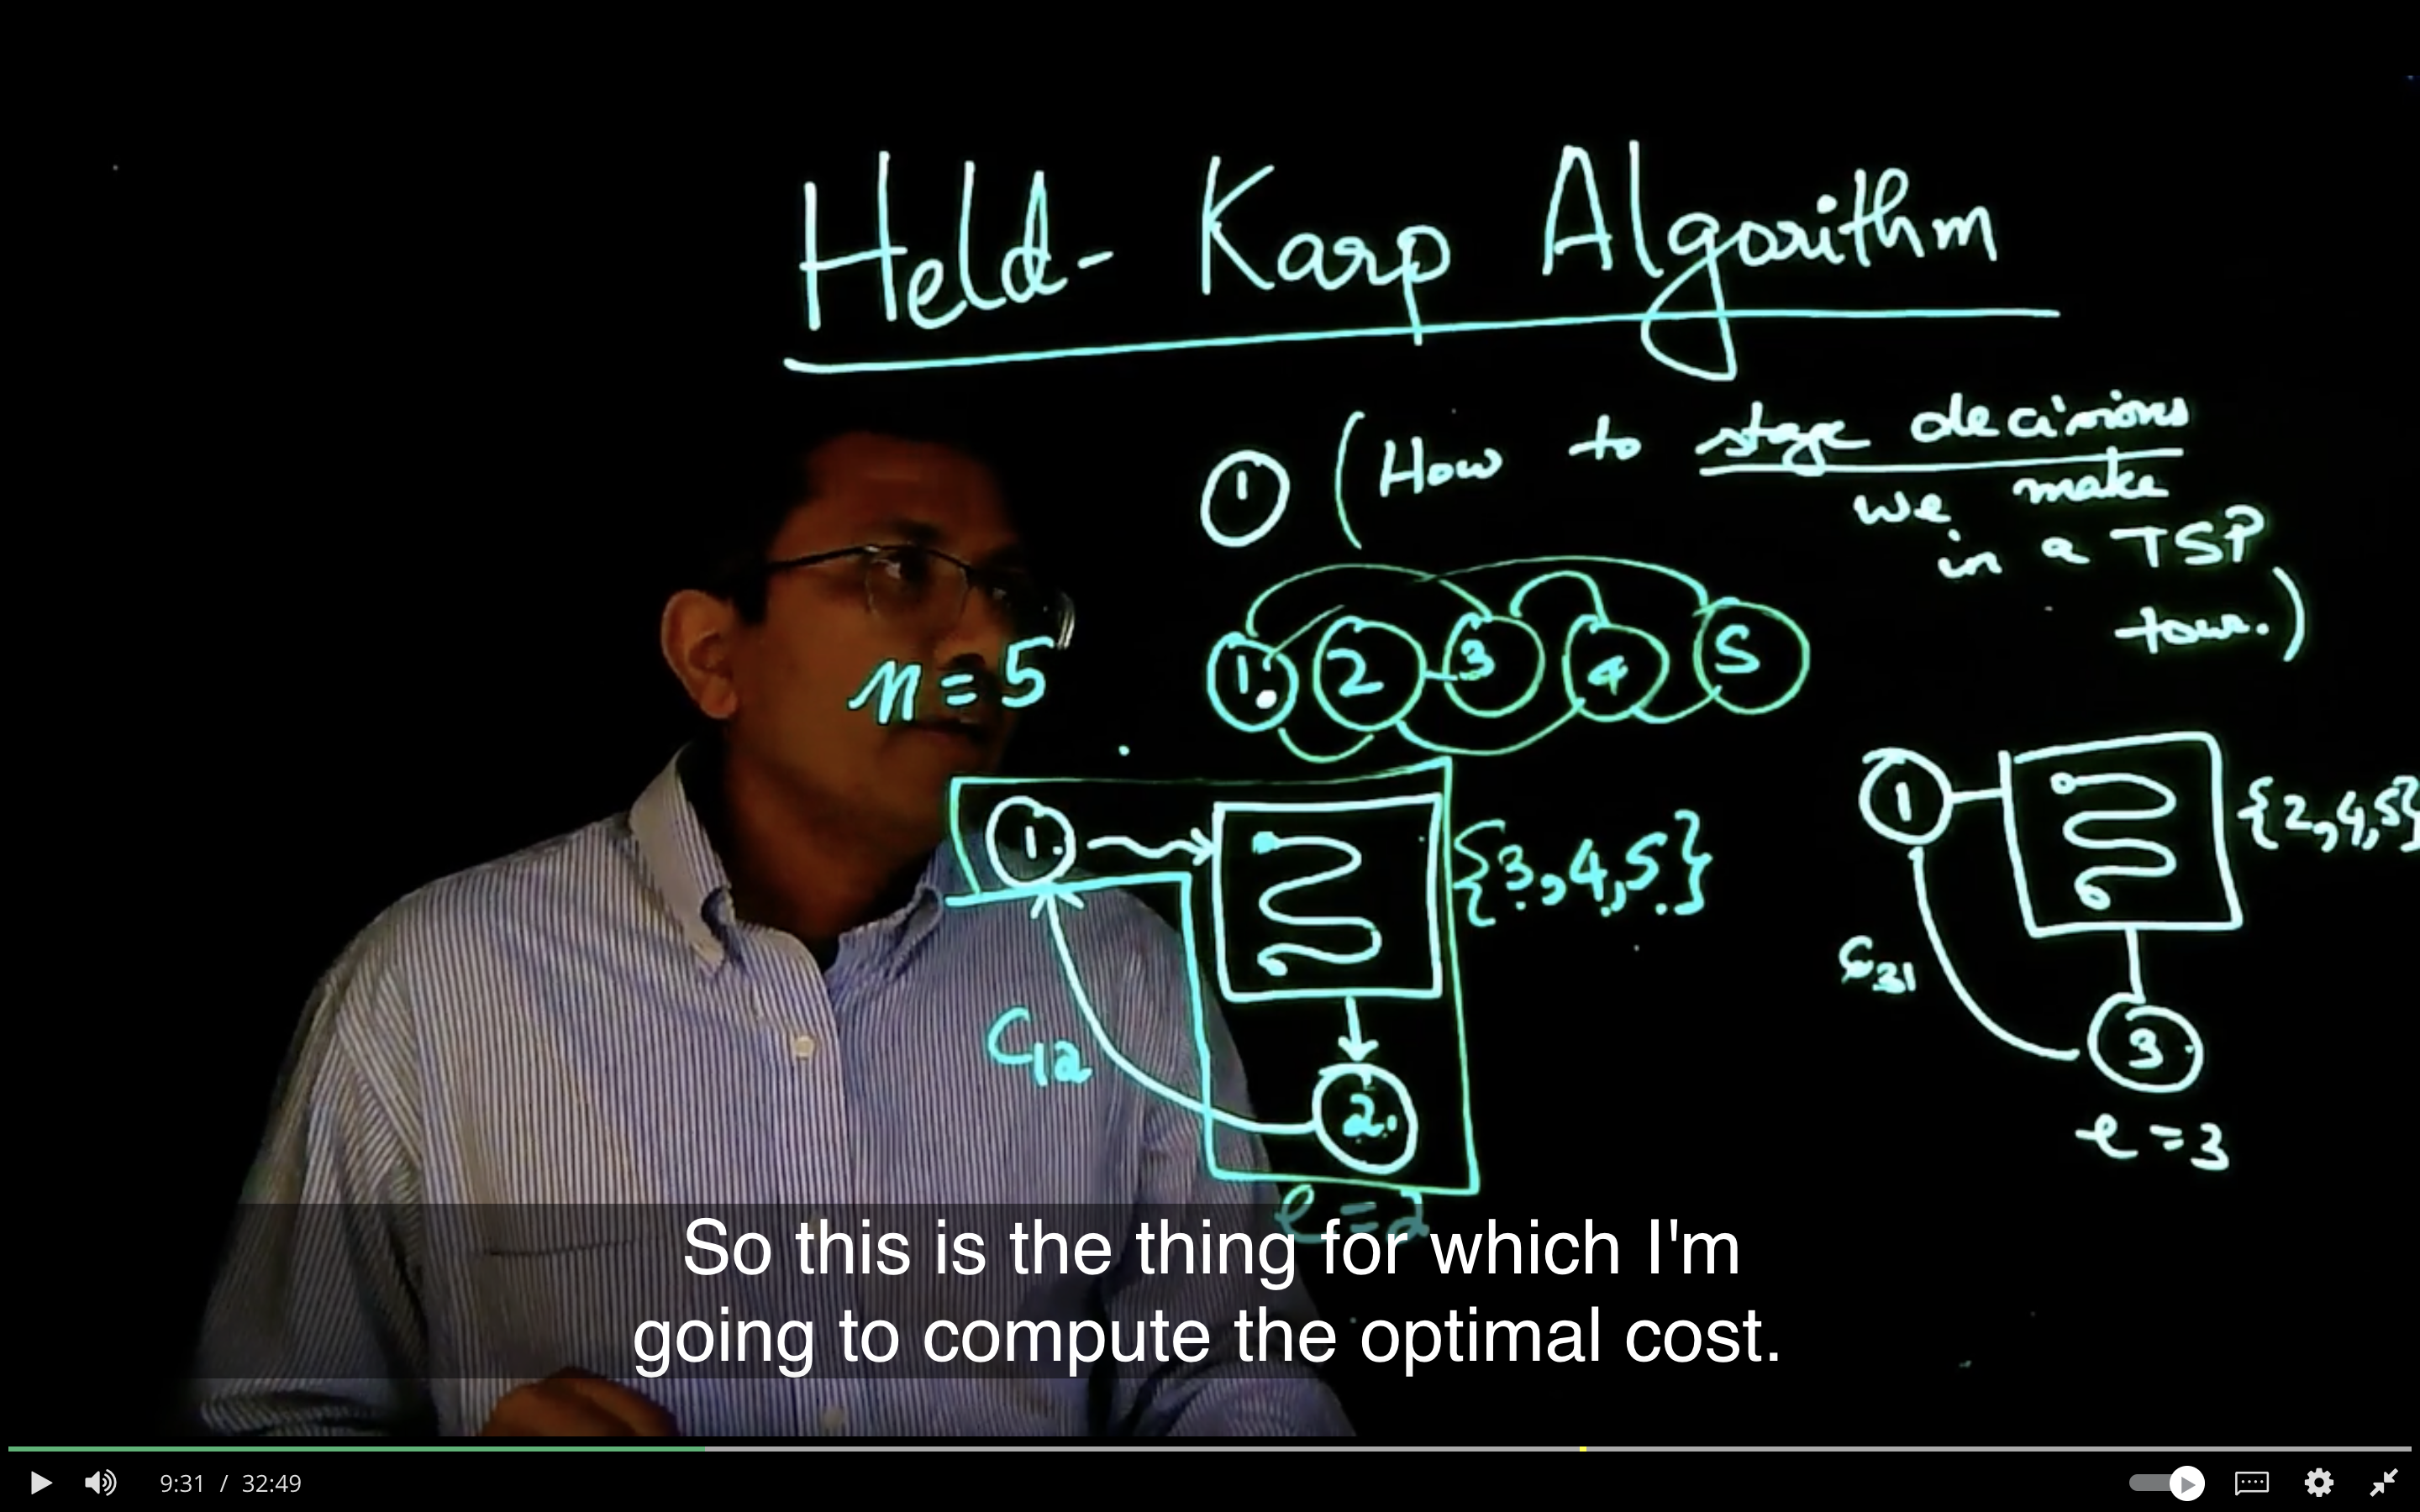 Held-Karp Algorithm
① (How to stage decisions
we make
in a TSP
tour.)
n=5
1 2 3 4 5
1 {3,4,5}
C12
2
e=2
1 {2,4,5}
C31
3
e=3
So this is the thing for which I'm
going to compute the optimal cost.
9:31 / 32:49